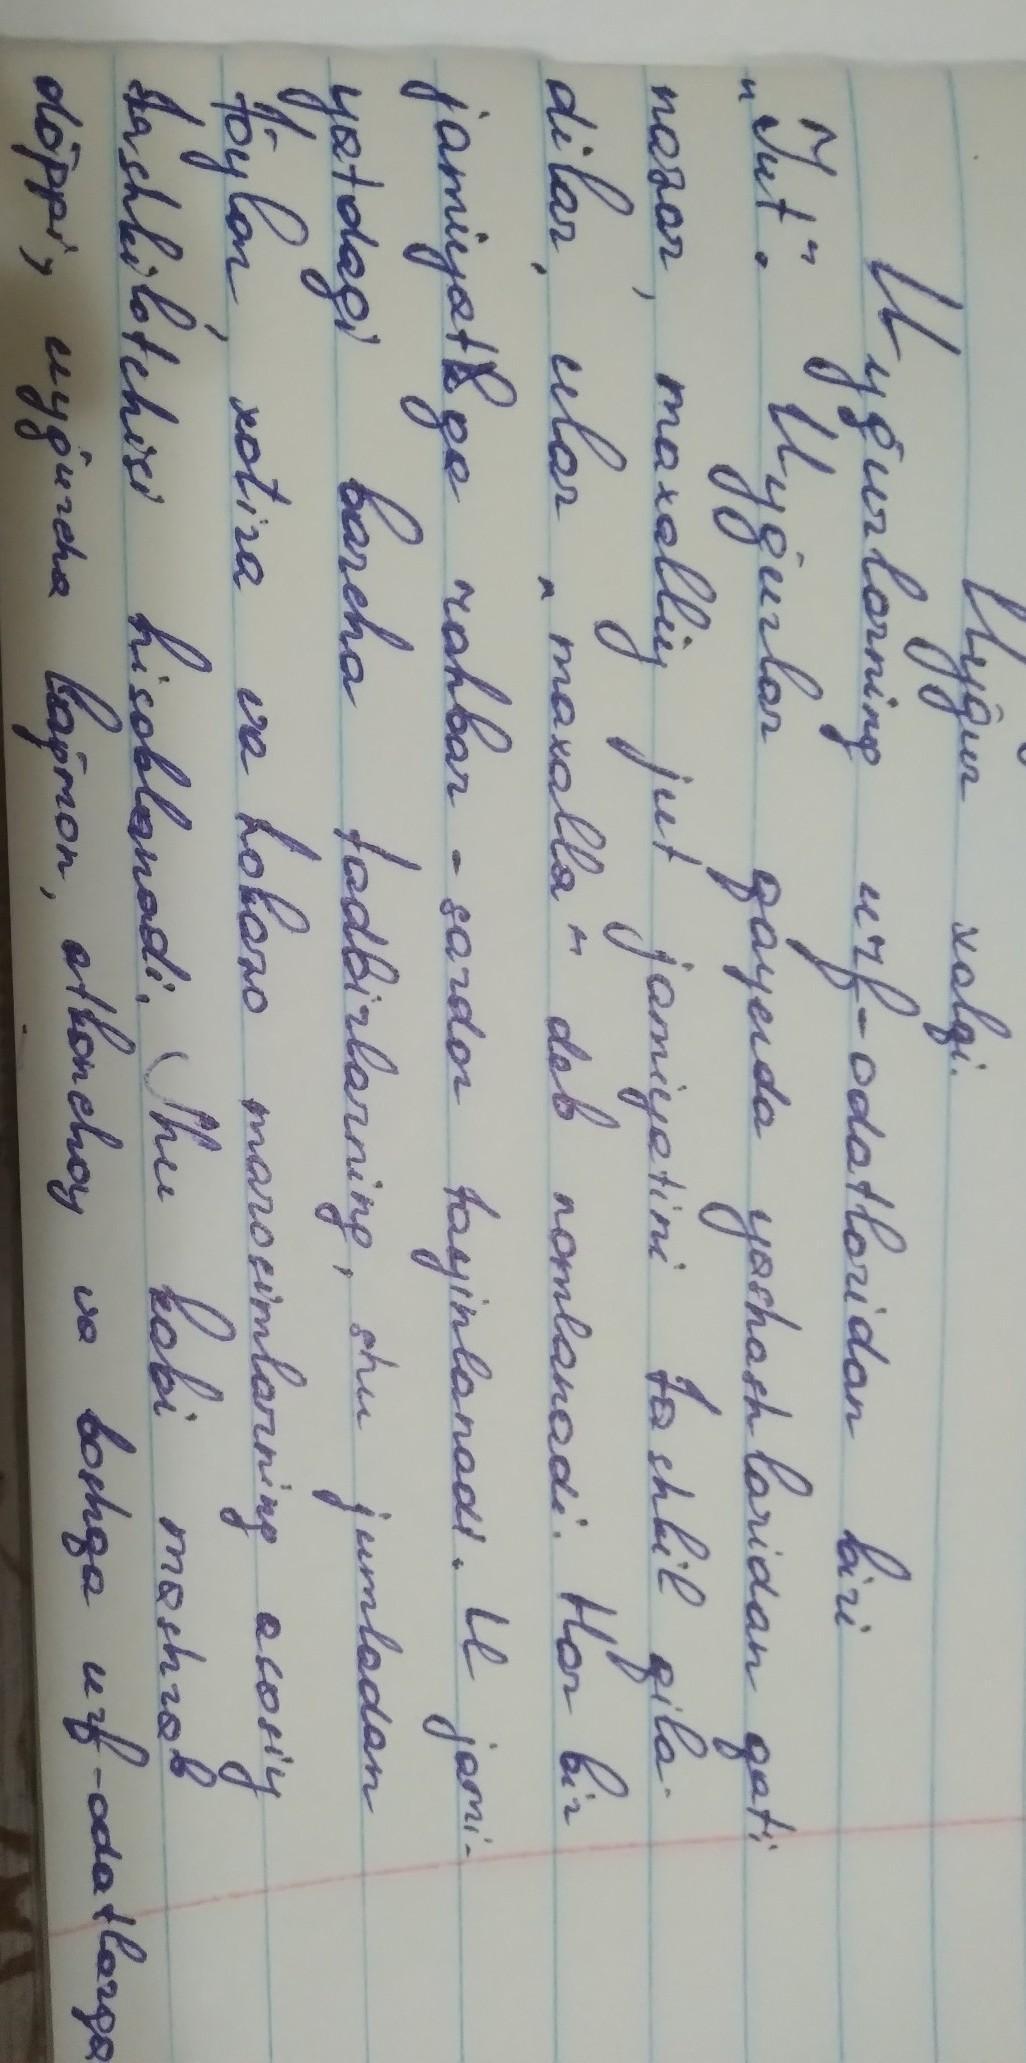 Uyğur xalqi.
Uyğurlarning urf-odatlaridan biri
"Jut". Uyğurlar qayerda yashashlaridan qati
nazar, maxalliy jut jamiyatini tashkil qila-
dilar, ular "maxalla" deb nomlanadi. Har bir
jamiyatga rahbar - sardor tayinlanadi. U jami-
yatdagi barcha tadbirlarning, shu jumladan
tõylar, xotira va hokazo marosimlarning asosiy
tashkilotchisi hisoblanadi. Shu kabi mashrab
dõppi, uyğurcha lağmon, atkanchay va boshqa urf-odatlarga